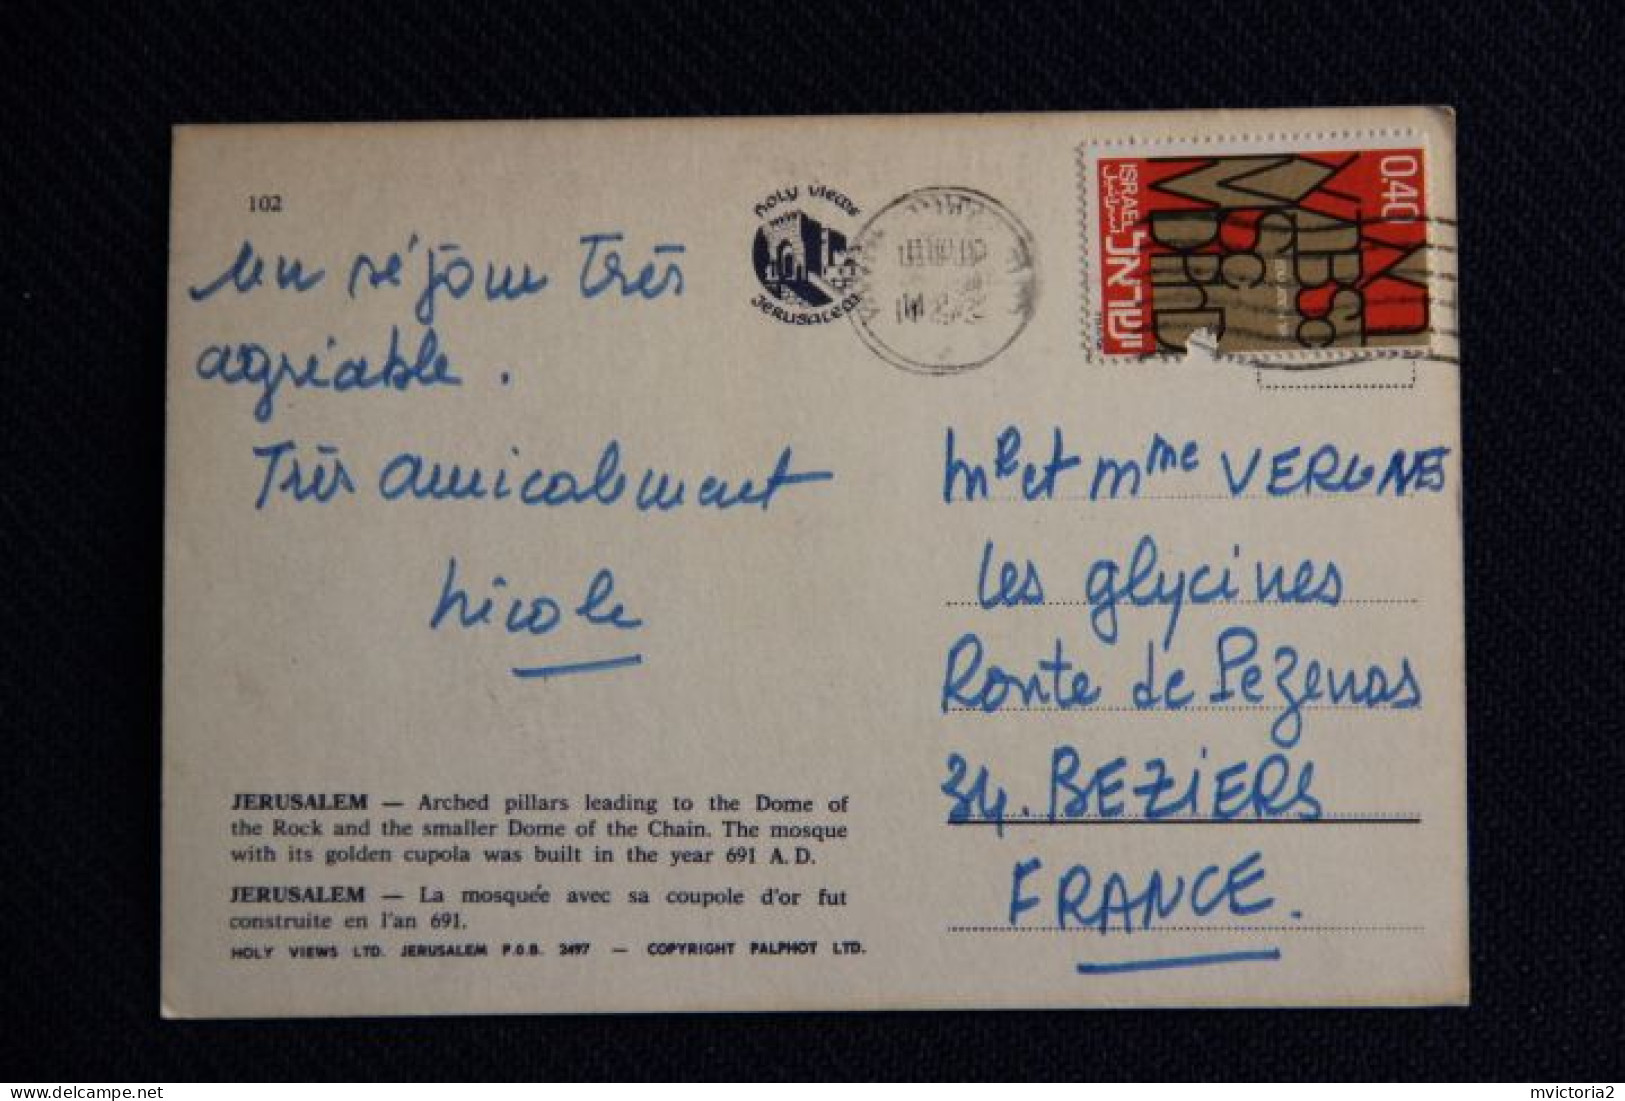 102
Un séjour Très
agréable.
Très amicalement
Nicole
HOLY VIEWS
JERUSALEM
ISRAEL
اسرائيل
ישראל
0.40
Ml et Mme VERGNES
les glycines
Route de Pezenas
34. BEZIERS
FRANCE.
JERUSALEM — Arched pillars leading to the Dome of
the Rock and the smaller Dome of the Chain. The mosque
with its golden cupola was built in the year 691 A.D.
JERUSALEM — La mosquée avec sa coupole d'or fut
construite en l'an 691.
HOLY VIEWS LTD. JERUSALEM P.O.B. 2497 — COPYRIGHT PALPHOT LTD.
mvictoria2